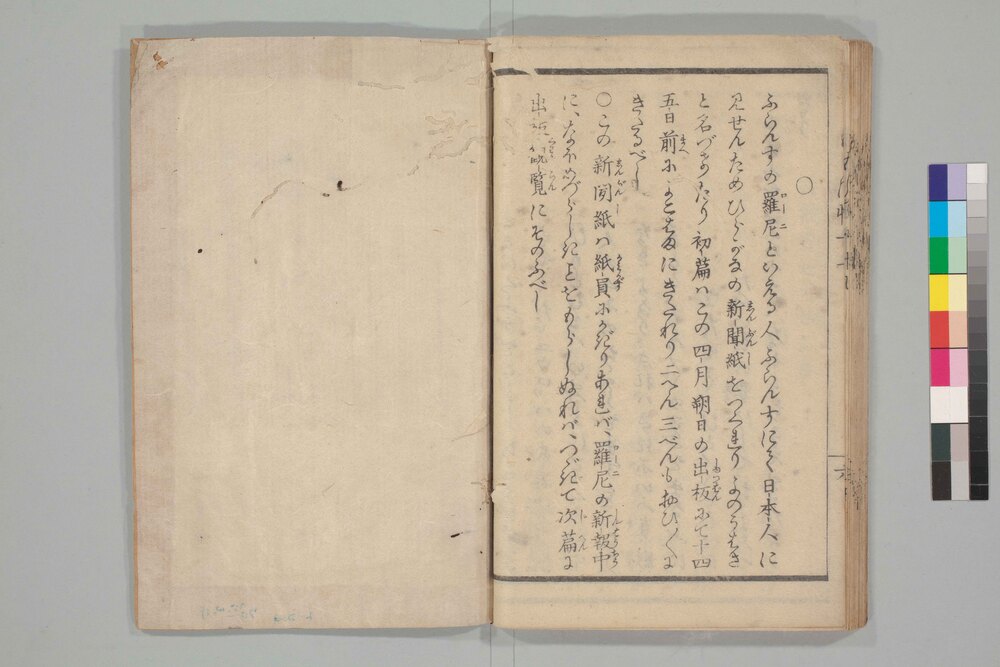 〇
ふらんすの羅尼といへる人ふらんすにて日本人に
見せんためひらがなの新聞紙をつくれりよのうはさ
と名づけたり初篇ハこの四月朔日の出板にて十四
五日前によこはまにきたれり二へん三べんも おひ〱に
きたるべし
〇この新聞紙ハ紙員にかぎりあれバ、羅尼の新報中
に、なほめづらしきことをもらしぬれバ、つぎて次篇に
出 覧にそのふべし
六